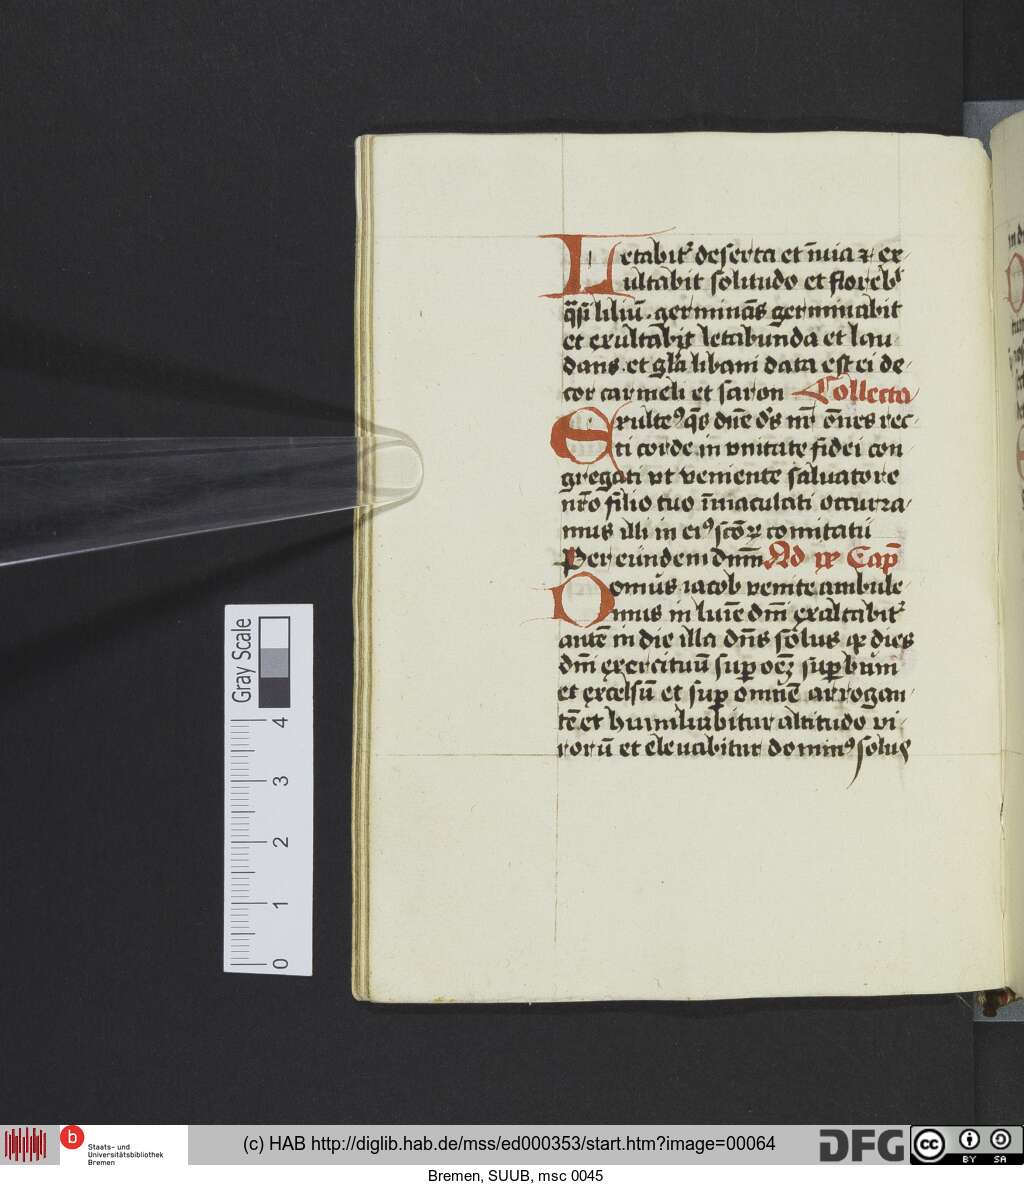 Letabit᷑ deserta et īuia ⁊ ex
ultabit solitudo et florebit
q̄si liliū. germinās germinabit
et exultabit letabunda et lau
dans. et gl̄a libani data est ei de
cor carmeli et saron Collecta
Exultēꝰ q̄s dn̄e ds̄ nr̄ om̄es rec
ti corde in vnitate fidei con
gregati vt veniente saluatore
nr̄o filio tuo īmaculati occurra
mus illi in eiꝰ scōꝝ comitatu
Per eundem dnm̄ Ad ix Cap̄
Domus iacob venite ambule
mus in luīe dn̄i exaltabit᷑
autē in die illa dn̄s solus qꝛ dies
dn̄i exercituū suꝑ oēꝫ suꝑbum
et excelsū et suꝑ omnē arrogan
tē et humiliabitur altitudo vi
rorū et eleuabitur dominꝰ solus
Gray Scale
4
3
2
1
0
b
Staats- und
Universitätsbibliothek
Bremen
(c) HAB http://diglib.hab.de/mss/ed000353/start.htm?image=00064
DFG
cc
BY SA
Bremen, SUUB, msc 0045